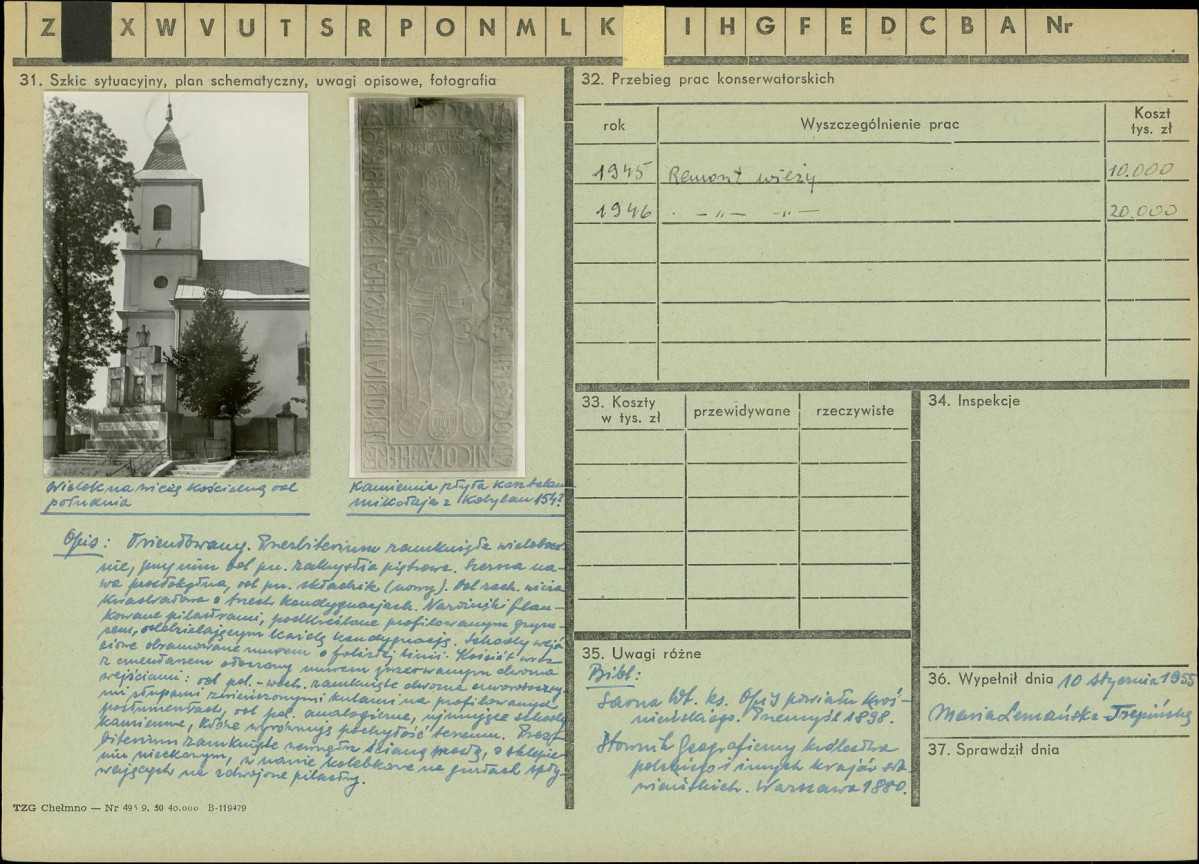 Z X W V U T S R P O N M L K I H G F E D C B A Nr
31. Szkic sytuacyjny, plan schematyczny, uwagi opisowe, fotografia
Widok na wieżę kościelną od
południa
Kamienna płyta kasztelana
Mikołaja z Kobylan 154?
Opis: Orientowany. Prezbiterium zamknięte wielobocz-
nie, przy nim od pn. zakrystia piętrowa. Szersza na-
wa prostokątna, od pn. składzik (nowy). Od zach. wieża
kwadratowa o trzech kondygnacjach. Narożniki flan-
kowane pilastrami, podkreślone profilowanym gzym-
sem, oddzielającym każdą kondygnację. Schody wejś-
ciowe obramowane murem o falistej linii. Kościół wraz
z cmentarzem otoczony murem przerwanym dwoma
wejściami: od poł.-wsch. zamknięte dwoma czworobocznz-
mi słupami zwieńczonymi kulami na profilowanych
postumentach, od poł. analogiczne, ujmujące schody
kamienne, które wyrównują pochyłość terenu. Prezt-
biterium zamknięte wewnątrz ścianą prostą, o sklepie-
niu nieckowym, w nawie kolebkowe na gurtach spły-
wających na zdwojone pilastry.
TZG Chełmno — Nr 495 9. 50 40.000 B-119479
32. Przebieg prac konserwatorskich
rok Wyszczególnienie prac Koszt
tys. zł
1945 Remont wieży 10.000
1946 - — „ — — „ — 20.000
33. Koszty
w tys. zł przewidywane rzeczywiste
34. Inspekcje
35. Uwagi różne
Bibl:
Sarna Wł. ks. Opis powiatu kroś-
nieńskiego. Przemyśl 1898.
Słownik Geograficzny królestwa
polskiego i innych krajów sło-
wiańskich. Warszawa 1880.
36. Wypełnił dnia 10 stycznia 1955
Maria Lemańska-Trepińska
37. Sprawdził dnia